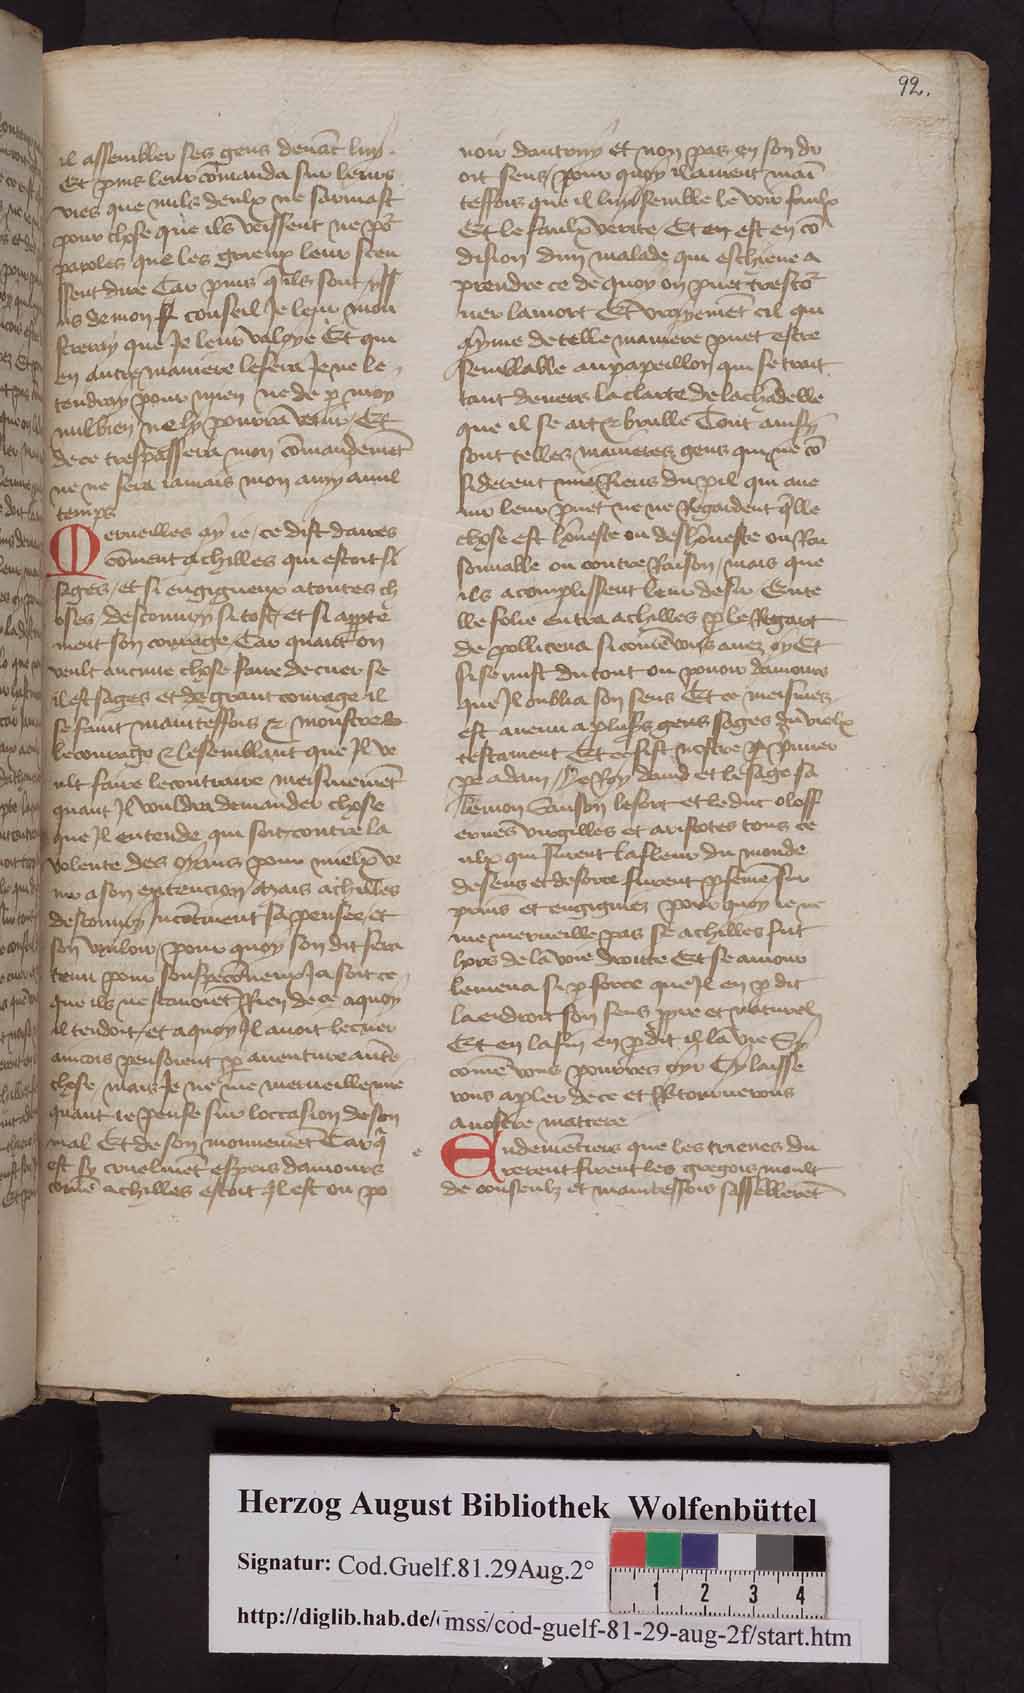 92.
il assembler ses gens deuāt luy.
Et puis leur cōmanda sur leurs
vies que nuls deulx ne sarmast
pour chose que ilz veissent ne por
paroles que les greieux leur sceu
ssent dire Car puis q̄ ilz sont yss
us de mon conseil Je leur mon
streray que Je leur valoye Et qui
en autre maniere le fera Je ne le
tendray pour mien ne de p moy
nul bien ne ly pourra venir Et
de ce trespassera mon cōmandemēt
ne ne sera iamais mon amy a nul
temps
Merueilles ay ie ce dist daires
cōment achilles qui estoit si
sages et si engigneux a toutes ch
oses descouury si tost et si apte
ment son courage Car quant on
veult aucune chose faire de cuer se
il est sages et de grant courage il
se faint maintessois & monstre
le courage & le semblant que Il ve
ult faire le contraire meismemēt
quant Il vouldra demander chose
que Il entende qui soit contre la
volente des oyans pour mielx ve
nir a son entencion Mais achilles
descouury incōtinent sa pensee et
son vouloir pour quoy son dit sera
tenu pour souspeconneux Ja soit ce
que ilz ne scauoiēt Rien de ce a quoy
il tendoit et a quoy Il auoit le cuer
aincois pensoient p auenture autre
chose mais Je ne me merueille mie
quant ie pense sur loccasion de son
mal Et de son mouuemēt Car q̄
est sy cruelmēt espris damours
cōme achilles estoit Il est ou po
uoir dautruy et non pas en son dr
oit sens pour quoy il auient main
tessois que il luy semble le voir faulx
Et le faulx verite Et en est en cō
dision dun malade qui eschieue a
prendre ce de quoy on puet trestor
ner la mort Et vrayemēt cil qui
ayme de telle maniere puet estre
semblable au papeillon qui se trait
tant deuers la clarte de la chādelle
que il se art & brulle Tout ainsy
sont telles manieres gens qui ne cō
siderent nue Riens du pil qui aue
nir leur puet ne ne Regardent q̄lle
chose est hōneste ou deshōneste ou Rai
sonnable ou contre Raison mais que
ilz acomplissent leur desir En te
lle folie entra achilles p le Regart
de pollicena si cōme vous auez oy Et
si se mist du tout ou pouoir damours
que Il oublia son sens Et ce meismes
est auenu a plusrs gens sages du vielx
testament Et ce fist nostre p̄mier
pe adam Le Roy dauid et le sage sa
lemon Sanson le fort et le duc oloff
ernes virgilles et aristotes tous ce
ulx qui furent la fleur du monde
de sens et de force furent p feme sur
prins et engignez pour quoy ie ne
me merueille pas se achilles fut
hors de la voie droitte Et se amour
le mena si p force que Il en p dit
la endroit son sens ppre et naturel
Et en la fin en p dit il la vie Sy
cōme vous pourres oyr Cy laisse
rons a pler de ce et Retournerons
a nostre matiere
Endemētiers que les trieues du
rerent furent les gregois moult
de conseulz et maintessois sassēblerēt
Herzog August Bibliothek Wolfenbüttel
Signatur: Cod.Guelf.81.29Aug.2°
http://diglib.hab.de/ mss/cod-guelf-81-29-aug-2f/start.htm
1 2 3 4